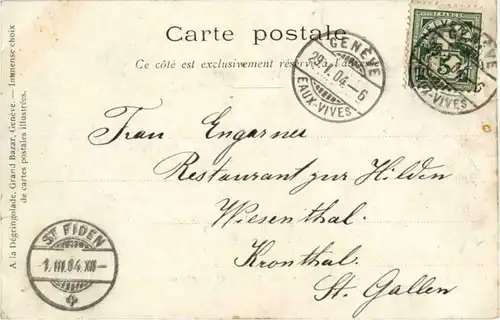 Carte postale
Ce côté est exclusivement réservé à l'adresse
GENÈVE
29.II.04-6
EAUX-VIVES
FRANCO
5
GENÈVE
EAUX-VIVES
Frau Engarner
Restaurant zur Hilden
Wiesenthal.
Kronthal.
St. Gallen
ST FIDEN
1.III.04.XII-
A la Dégringolade, Grand Bazar, Genève. — Immense choix
de cartes postales illustrées.